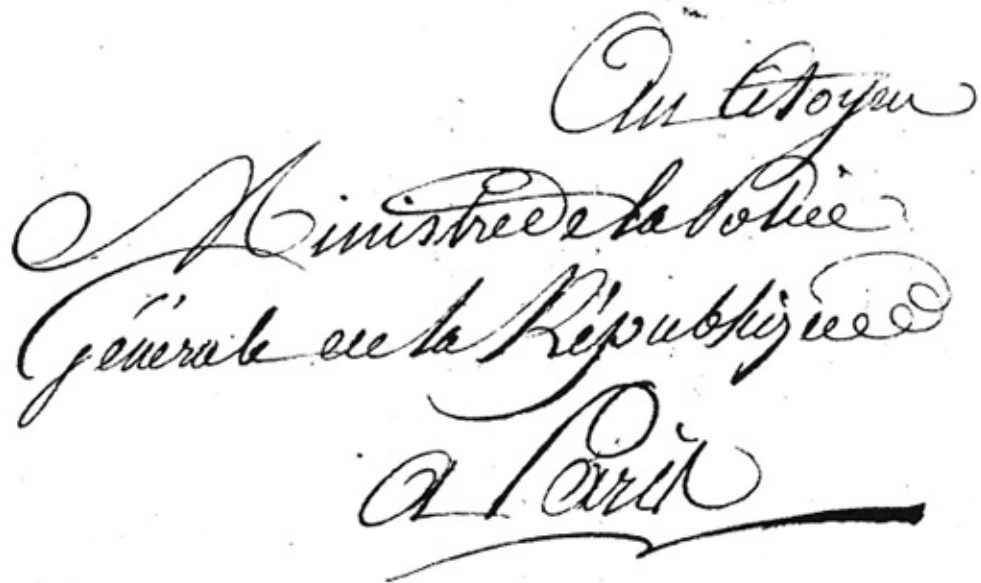 Au Citoyen
Ministre de la Police
Générale de la République
a Paris